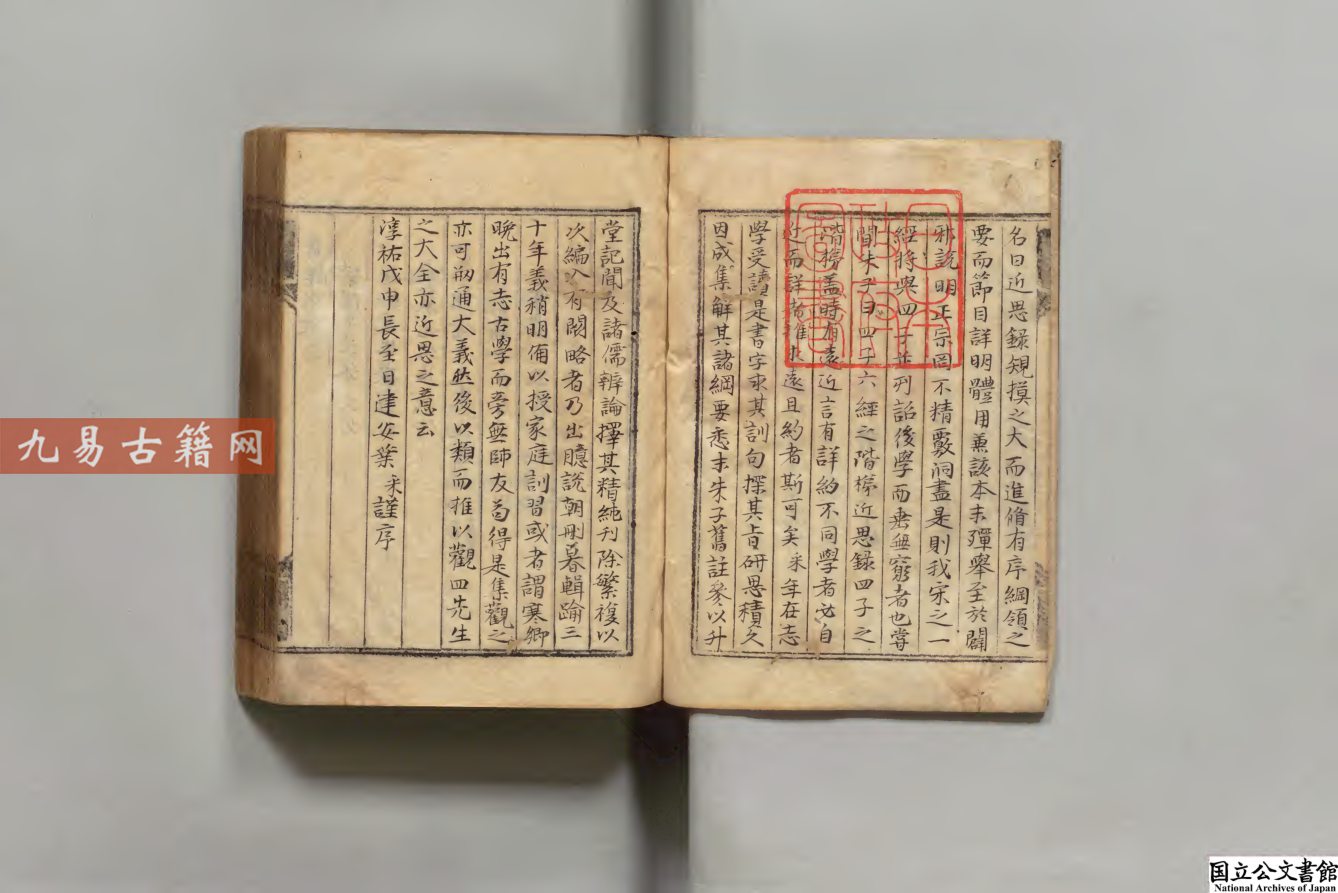 名曰近思錄規摸之大而進脩有序綱領之
要而節目詳明體用兼該本末殫舉至於闢
邪說明正宗罔不精覈洞盡是則我宋之一
經將與四子並列詔後學而垂無窮者也嘗
聞朱子曰四子六經之階梯近思錄四子之
階梯盖時有遠近言有詳約不同學者必自
近而詳者推求遠且約者斯可矣采年在志
學受讀是書字求其訓句探其旨研思積久
因成集解其諸綱要悉本朱子舊註參以升
堂記聞及諸儒辨論擇其精純刊除繁複以
次編入有闕略者乃出臆說朝刪暮輯踰三
十年義稍明備以授家庭訓習或者謂寒鄉
晚出有志古學而旁無師友苟得是集觀之
亦可剏通大義然後以類而推以觀四先生
之大全亦近思之意云
淳祐戊申長至日建安葉采謹序
日本
政府
圖書
九易古籍网
国立公文書館
National Archives of Japan